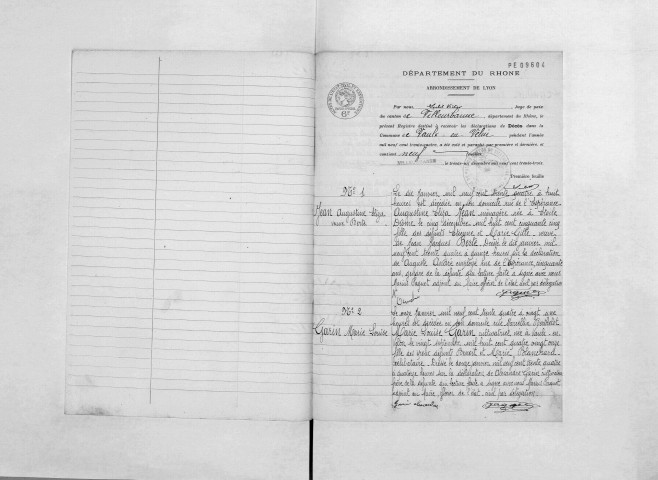 PE09604
DÉPARTEMENT DU RHONE
ARRONDISSEMENT DE LYON
Par nous, Juge de paix
du canton de Villeurbanne, département du Rhône, le
présent Registre destiné à recevoir les déclarations de Décès dans la
Commune de Vaulx en Velin pendant l'année
mil neuf cent trente-quatre, a été coté et paraphé par première et dernière, et
contient neuf feuilles
le trente-un décembre mil neuf cent trente-trois.
Première feuille
N° 1
Jean Augustine Eliza
veuve Berte
Le dix janvier mil neuf cent trente quatre à huit
heures est décédée en son domicile rue de l'Espérance
Augustine Eliza Jean ménagère née à
Drôme le cinq décembre mil huit cent cinquante cinq
fille des défunts Etienne et Marie veuve
de Jean Jacques Berte. Dressé le dix janvier mil
neuf cent trente quatre à quinze heures sur la déclaration
de Auguste André employé rue de l'Espérance, cinquante
ans, de la défunte qui lecture faite a signé avec nous
adjoint au Maire officier de l'état civil par délégation
N° 2
Garin Marie Louise
Le onze janvier mil neuf cent trente quatre à vingt une
heures est décédée en son domicile rue Marcellin Berthelot
Marie Louise Garin cultivatrice née à Vaulx-en-
Velin le vingt septembre mil huit cent quatre vingt onze
fille des défunts Benoit et Marie Blanchard
célibataire. Dressé le douze janvier mil neuf cent trente quatre
à quatorze heures sur la déclaration de Alexandre Garin cultivateur
frère de la défunte qui lecture faite a signé avec nous
adjoint au Maire officier de l'état civil par délégation.